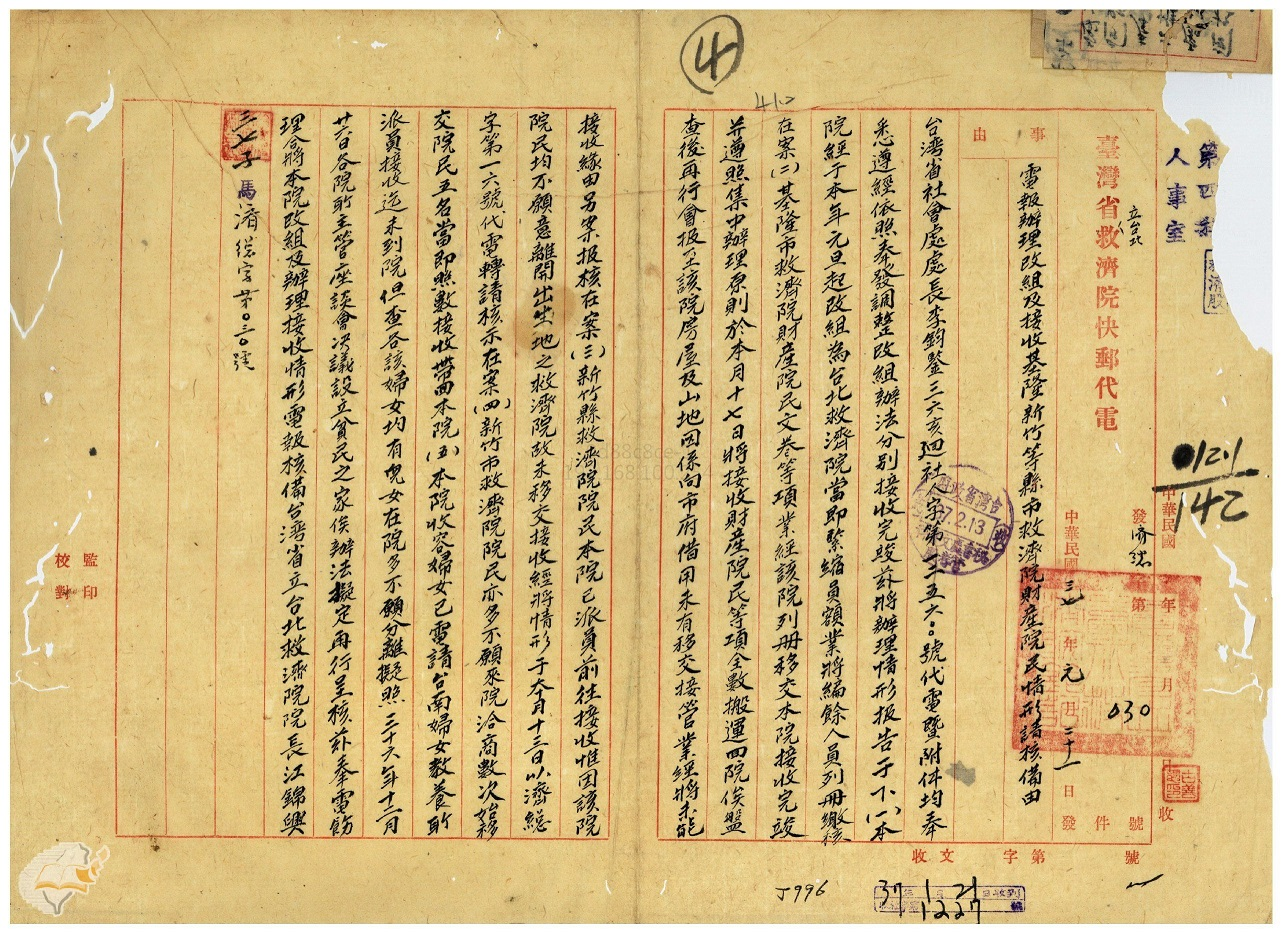 ④
410
第四科
人事室
0121
142
中華民國 年 月 日收
臺灣省立台北救濟院快郵代電
發濟總第030號
中華民國三七年元月二十一日發
件
事由
電報辦理改組及接收基隆新竹等縣市救濟院財產院民情形請核備由
台湾省社會處處長李鈞鑒三六亥迴社人字第三三五六〇號代電暨附件均奉
悉遵經依照奉發調整改組辦法分別接收完竣茲將辦理情形报告于下(一)本
院經于本年元旦起改組為台北救濟院當即緊縮員額業將編餘人員列册繳核
在案(二)基隆市救濟院財產院民文卷等項業經該院列册移交本院接收完竣
並遵照集中辦理原則於本月十七日將接收財產院民等項全數搬運回院俟盤
查後再行會报至該院房屋及山地因係向市府借用未有移交接管業經將未能
接收緣由另案报核在案(三)新竹縣救濟院院民本院已派員前往接收惟因該院
院民均不願意離開出生地之救濟院故未移交接收經將情形于本月十三日以濟總
字第一六號代電轉請核示在案(四)新竹市救濟院院民亦多不願來院洽商數次始移
交院民五名當即照數接收帶回本院(五)本院收容婦女已電請台南婦女教養所
派員接收迄未到院但查各該婦女均有兒女在院多不願分離擬照三十六年十二月
廿六日各院所主管座談會决議設立貧民之家俟辦法擬定再行呈核茲奉電飭
理合將本院改組及辦理接收情形電報核備台湾省立台北救濟院院長江錦興
三七子馬濟總字第〇三〇號
監印
校對
37.2.13
收文 字第 號
37 1 21
1227
J996